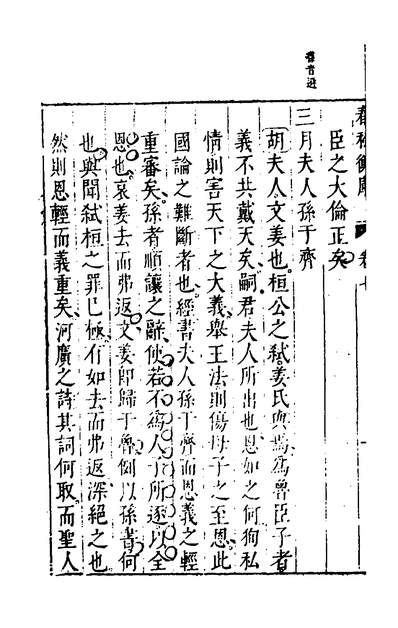 春秋衡庫 卷七
臣之大倫正矣
三月夫人孫于齊
胡夫人文姜也桓公之弑姜氏與焉爲魯臣子者
義不共戴天矣嗣君夫人所出也恩如之何徇私
情則害天下之大義舉王法則傷母子之至恩此
國論之難斷者也經書夫人孫于齊而恩義之輕
重審矣孫者順讓之辭使若不爲人子所逐以全
恩也哀姜去而弗返文姜即歸于魯例以孫書何
也與聞弑桓之罪已極有如去而弗返深絕之也
然則恩輕而義重矣河廣之詩其詞何取而聖人